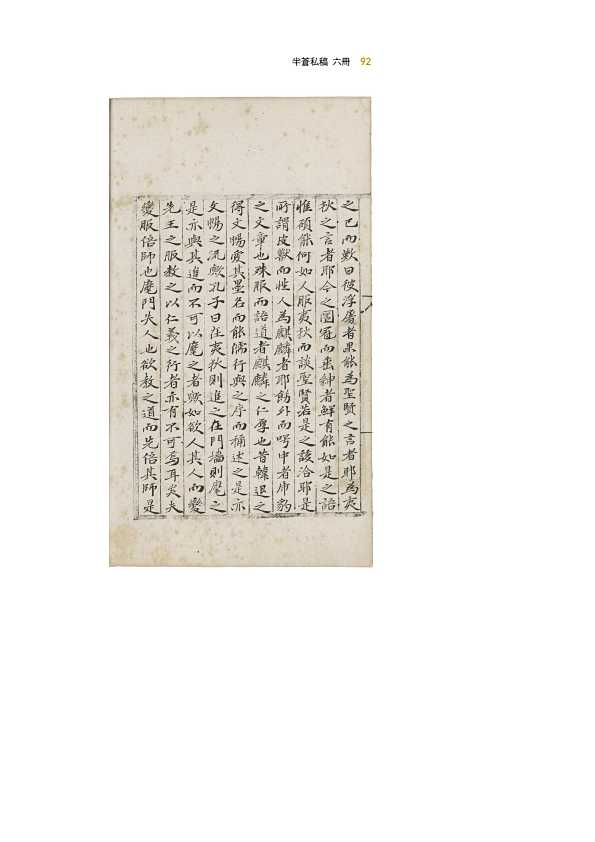 半蒼私稿 六冊 92
之已而歎曰彼浮屠者果能爲聖賢之言者耶爲夷
狄之言者耶今之圓冠而垂紳者鮮有能如是之語
惟頑能何如人服夷狄而談聖賢若是之該洽耶是
所謂皮獸而性人爲麒麟者耶餙外而咢中者虎豹
之文章也殊服而語道者麒麟之仁厚也昔韓退之
得文暢愛其墨名而能儒行與之序而稱述之是亦
文暢之流歟孔子曰在夷狄則進之在門墻則麾之
是亦與其進而不可以麾之者歟如欲人其人而變
先王之服敎之以仁義之行者亦有不可焉耳矣夫
變服倍師也麾門失人也欲敎之道而先倍其師是